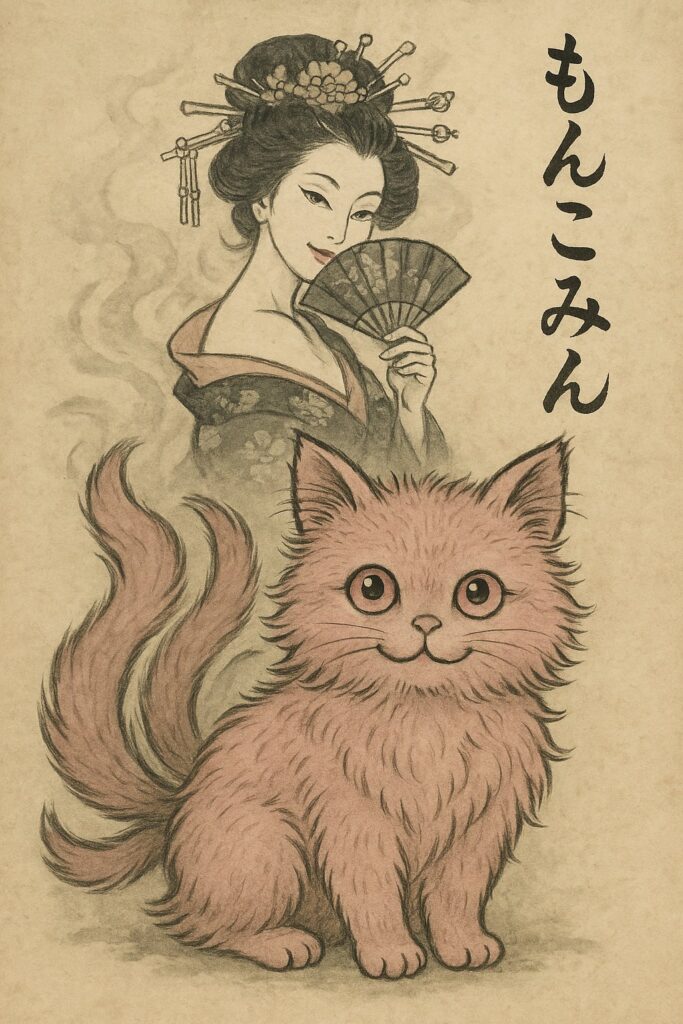 もんこみん